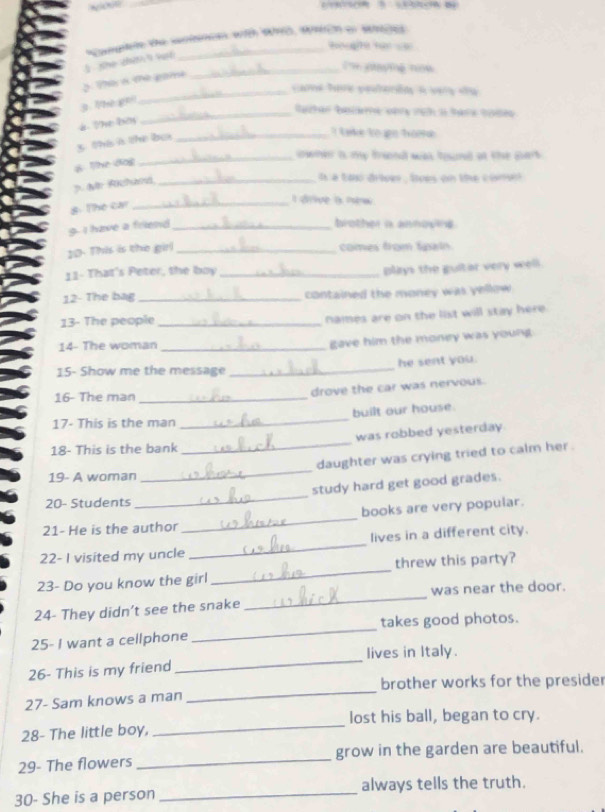 "Complete the sentences with WHO, WHICH or WHOSE
1- She didn't
2- This is the game I'm playing now.
3- The girl came here yesterday is very shy
4- The boy father became very rich is here today
5- This is the bus I take to go home
6- The dog owner is my friend was found at the park.
7- Mr Richard, is a taxi driver, lives on the corner.
8- The car which I drive is new
9- I have a friend whose brother is annoying
10- This is the girl who comes from Spain.
11- That's Peter, the boy who plays the guitar very well.
12- The bag which contained the money was yellow
13- The people names are on the list will stay here.
14- The woman who gave him the money was young.
15- Show me the message which he sent you.
16- The man who drove the car was nervous.
17- This is the man who built our house.
18- This is the bank which was robbed yesterday
19- A woman whose daughter was crying tried to calm her.
20- Students who study hard get good grades.
21- He is the author whose books are very popular.
22- I visited my uncle who lives in a different city.
23- Do you know the girl who threw this party?
24- They didn't see the snake which was near the door.
25- I want a cellphone takes good photos.
26- This is my friend lives in Italy.
27- Sam knows a man brother works for the presider
28- The little boy, lost his ball, began to cry.
29- The flowers grow in the garden are beautiful.
30- She is a person always tells the truth.